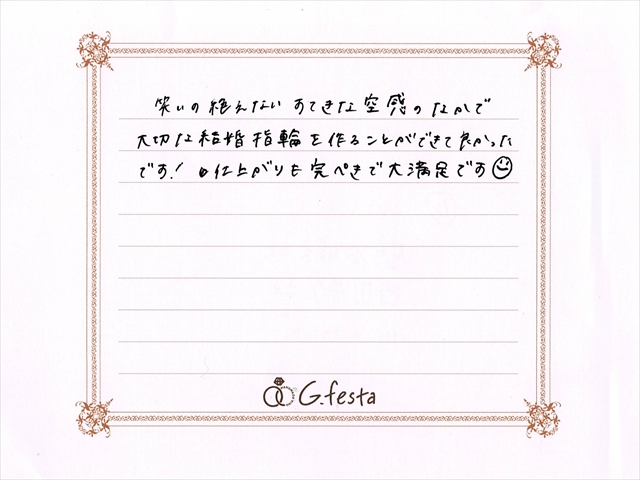 笑いの絶えないすてきな空感のなかで
大切な結婚指輪を作ることができて良かった
です! 仕上がりも完ぺきで大満足です☺
G.festa